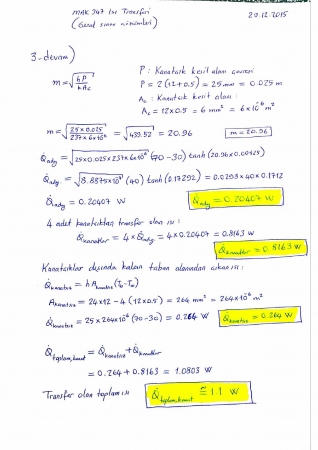 MAK 347 Isı Transferi 20.12.2015
(Genel sınav çözümleri)
3-devam)
m = √(hP / kAc) P : Kanatçık kesit alanı çevresi
P = 2(12+0.5) = 25 mm = 0.025 m
Ac : Kanatçık kesit alanı :
Ac = 12x0.5 = 6 mm² = 6x10⁻⁶ m²
m = √(25x0.025 / 237x6x10⁻⁶) = √439.52 = 20.96 m = 20.96
Q̇adg = √(25x0.025x237x6x10⁻⁶) (70-30) tanh (20.96x0.00825)
Q̇adg = √(8.8875x10⁻⁴) (40) tanh (0.17292) = 0.0298x40x0.1712
Q̇adg = 0.20407 W Q̇adg = 0.20407 W
4 adet kanatçıktan transfer olan ısı :
Q̇kanatlar = 4xQ̇adg = 4x0.20407 = 0.8163 W
Q̇kanatlar = 0.8163 W
Kanatçıklar dışında kalan taban alanından çıkan ısı :
Q̇kanatsız = hAkanatsız(Tb-T∞)
Akanatsız = 24x12 - 4(12x0.5) = 264 mm² = 264x10⁻⁶ m²
Q̇kanatsız = 25x264x10⁻⁶ (70-30) = 0.264 W Q̇kanatsız = 0.264 W
Q̇toplam,kanat = Q̇kanatsız + Q̇kanatlar
= 0.264 + 0.8163 = 1.0803 W
Transfer olan toplam ısı Q̇toplam,kanat ≅ 1.1 W